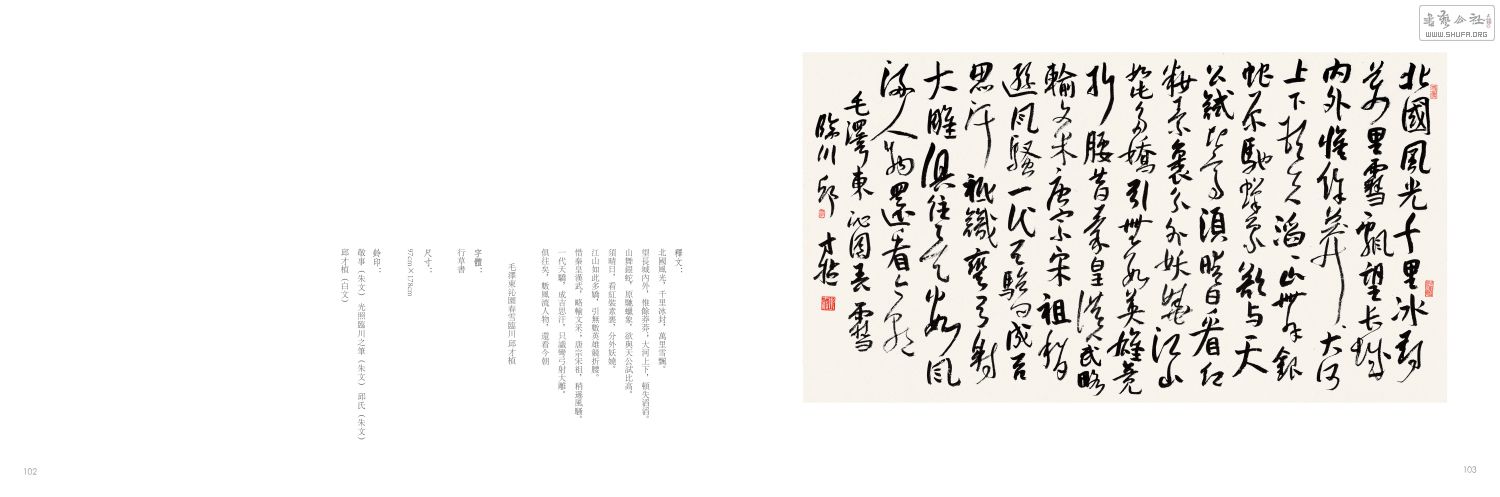 書藝公社
WWW.SHUFA.ORG
北國風光千里冰封
萬里雪飄望長城
内外惟餘莽莽大河
上下頓失滔滔山舞銀
蛇原馳蠟象欲与天
公試比高須晴日看红
粧素裹分外妖嬈江山
如此多嬌引無數英雄競
折腰昔秦皇漢武略
輸文采唐宗宋祖稍
遜風騷一代天驕成吉
思汗祇識彎弓射
大雕俱往矣數風
流人物還看今朝
毛澤東沁園春雪
臨川邱才楨
103
釋文：
北國風光，千里冰封，萬里雪飄。
望長城內外，惟餘莽莽，大河上下，頓失滔滔。
山舞銀蛇，原馳蠟象，欲與天公試比高。
須晴日，看紅裝素裹，分外妖嬈。
江山如此多嬌，引無數英雄競折腰。
惜秦皇漢武，略輸文采，唐宗宋祖，稍遜風騷。
一代天驕，成吉思汗，只識彎弓射大雕。
俱往矣，數風流人物，還看今朝
毛澤東沁園春雪臨川邱才楨
字體：
行草書
尺寸：
97cm×178cm
鈐印：
敬事（朱文） 光照臨川之筆（朱文） 邱氏（朱文）
邱才楨（白文）
102